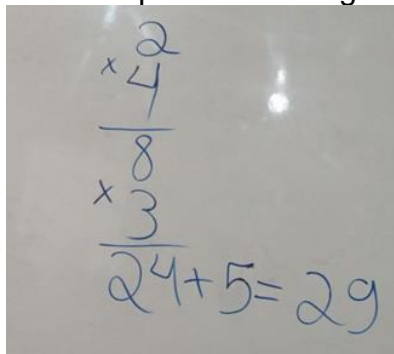 2
× 4
8
× 3
24 + 5 = 29